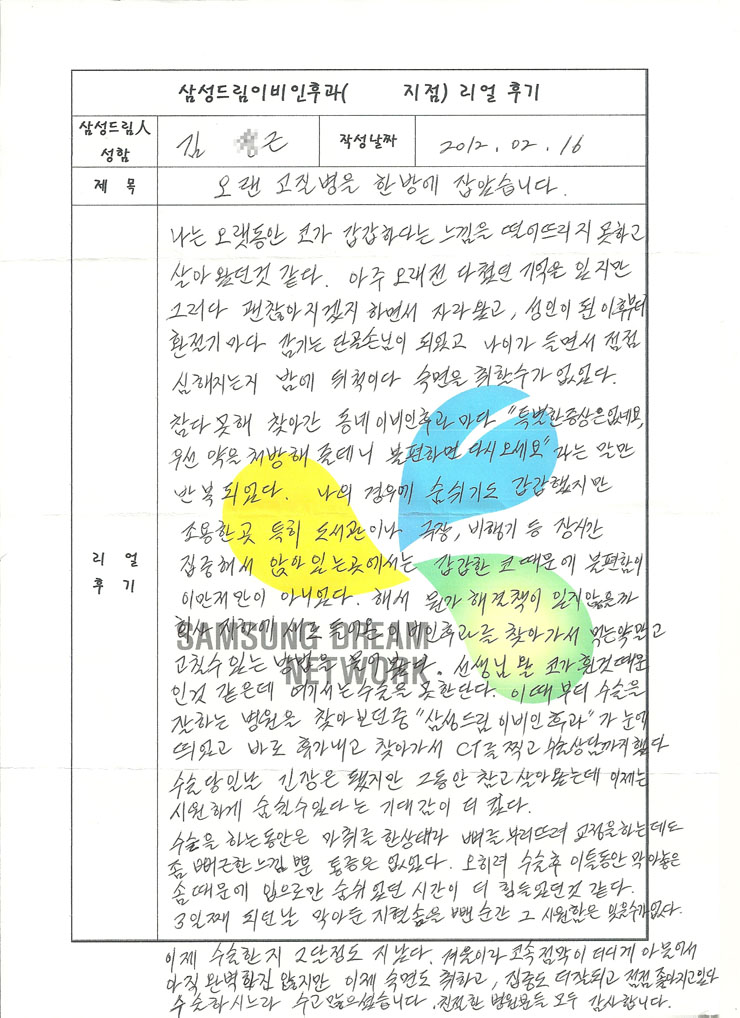 삼성드림이비인후과( 지점) 리얼 후기
삼성드림人 성함
김 근
작성날짜
2012. 02. 16
제 목
오랜 고질병을 한방에 잡았습니다.
리 얼
후 기
나는 오랫동안 코가 갑갑하다는 느낌을 떨어뜨리지 못하고
살아 왔던것 같다. 아주 오래전 다쳤던 기억은 있지만
그러다 괜찮아지겠지 하면서 자라왔고, 성인이 된 이후부터
환절기 마다 감기는 단골손님이 되었고 나이가 들면서 점점
심해지는지 밤에 뒤척이다 숙면을 취할수가 없었다.
참다 못해 찾아간 동네 이비인후과 마다 "특별한증상은없네요,
우선 약을 처방해 줄테니 불편하면 다시오세요" 라는 말만
반복 되었다. 나의 경우에 숨쉬기도 갑갑했지만
조용한곳 특히 도서관이나 극장, 비행기 등 장시간
집중해서 앉아 있는곳에서는 갑갑한 코 때문에 불편함이
이만저만이 아니었다. 해서 뭔가 해결책이 있지않을까
회사 지하에 새로 들어온 이비인후과를 찾아가서 먹는약말고
고칠수 있는 방법을 물어 봤다. 선생님 왈 코가 휜것 때문
인것 같은데 여기서는 수술을 못한단다. 이때부터 수술을
잘하는 병원을 찾아보던중 "삼성드림 이비인후과"가 눈에
띄었고 바로 휴가내고 찾아가서 CT를 찍고 수술상담까지 했다
수술당일날 긴장은 됐지만 그동안 참고 살아왔는데 이제는
시원하게 숨쉴수있다는 기대감이 더 컸다.
수술을 하는동안은 마취를 한상태라 뼈를 부러뜨려 교정을하는데도
좀 뻐근한느낌 뿐 통증은 없었다. 오히려 수술후 이틀동안 막아놓은
솜 때문에 입으로만 숨쉬었던 시간이 더 힘들었던것 같다.
3일째 되던날 막아둔 지혈솜을 뺀 순간 그 시원함은 잊을수가없다.
이제 수술한지 2달정도 지났다. 겨울이라 코속 점막이 더디게 아물어서
아직 완벽하진 않지만 이제 숙면도 취하고, 집중도 더잘되고 점점 좋아지고있다
수술하시느라 수고많으셨습니다. 친절한 병원분들 모두 감사합니다.
SAMSUNG DREAM
NETWORK